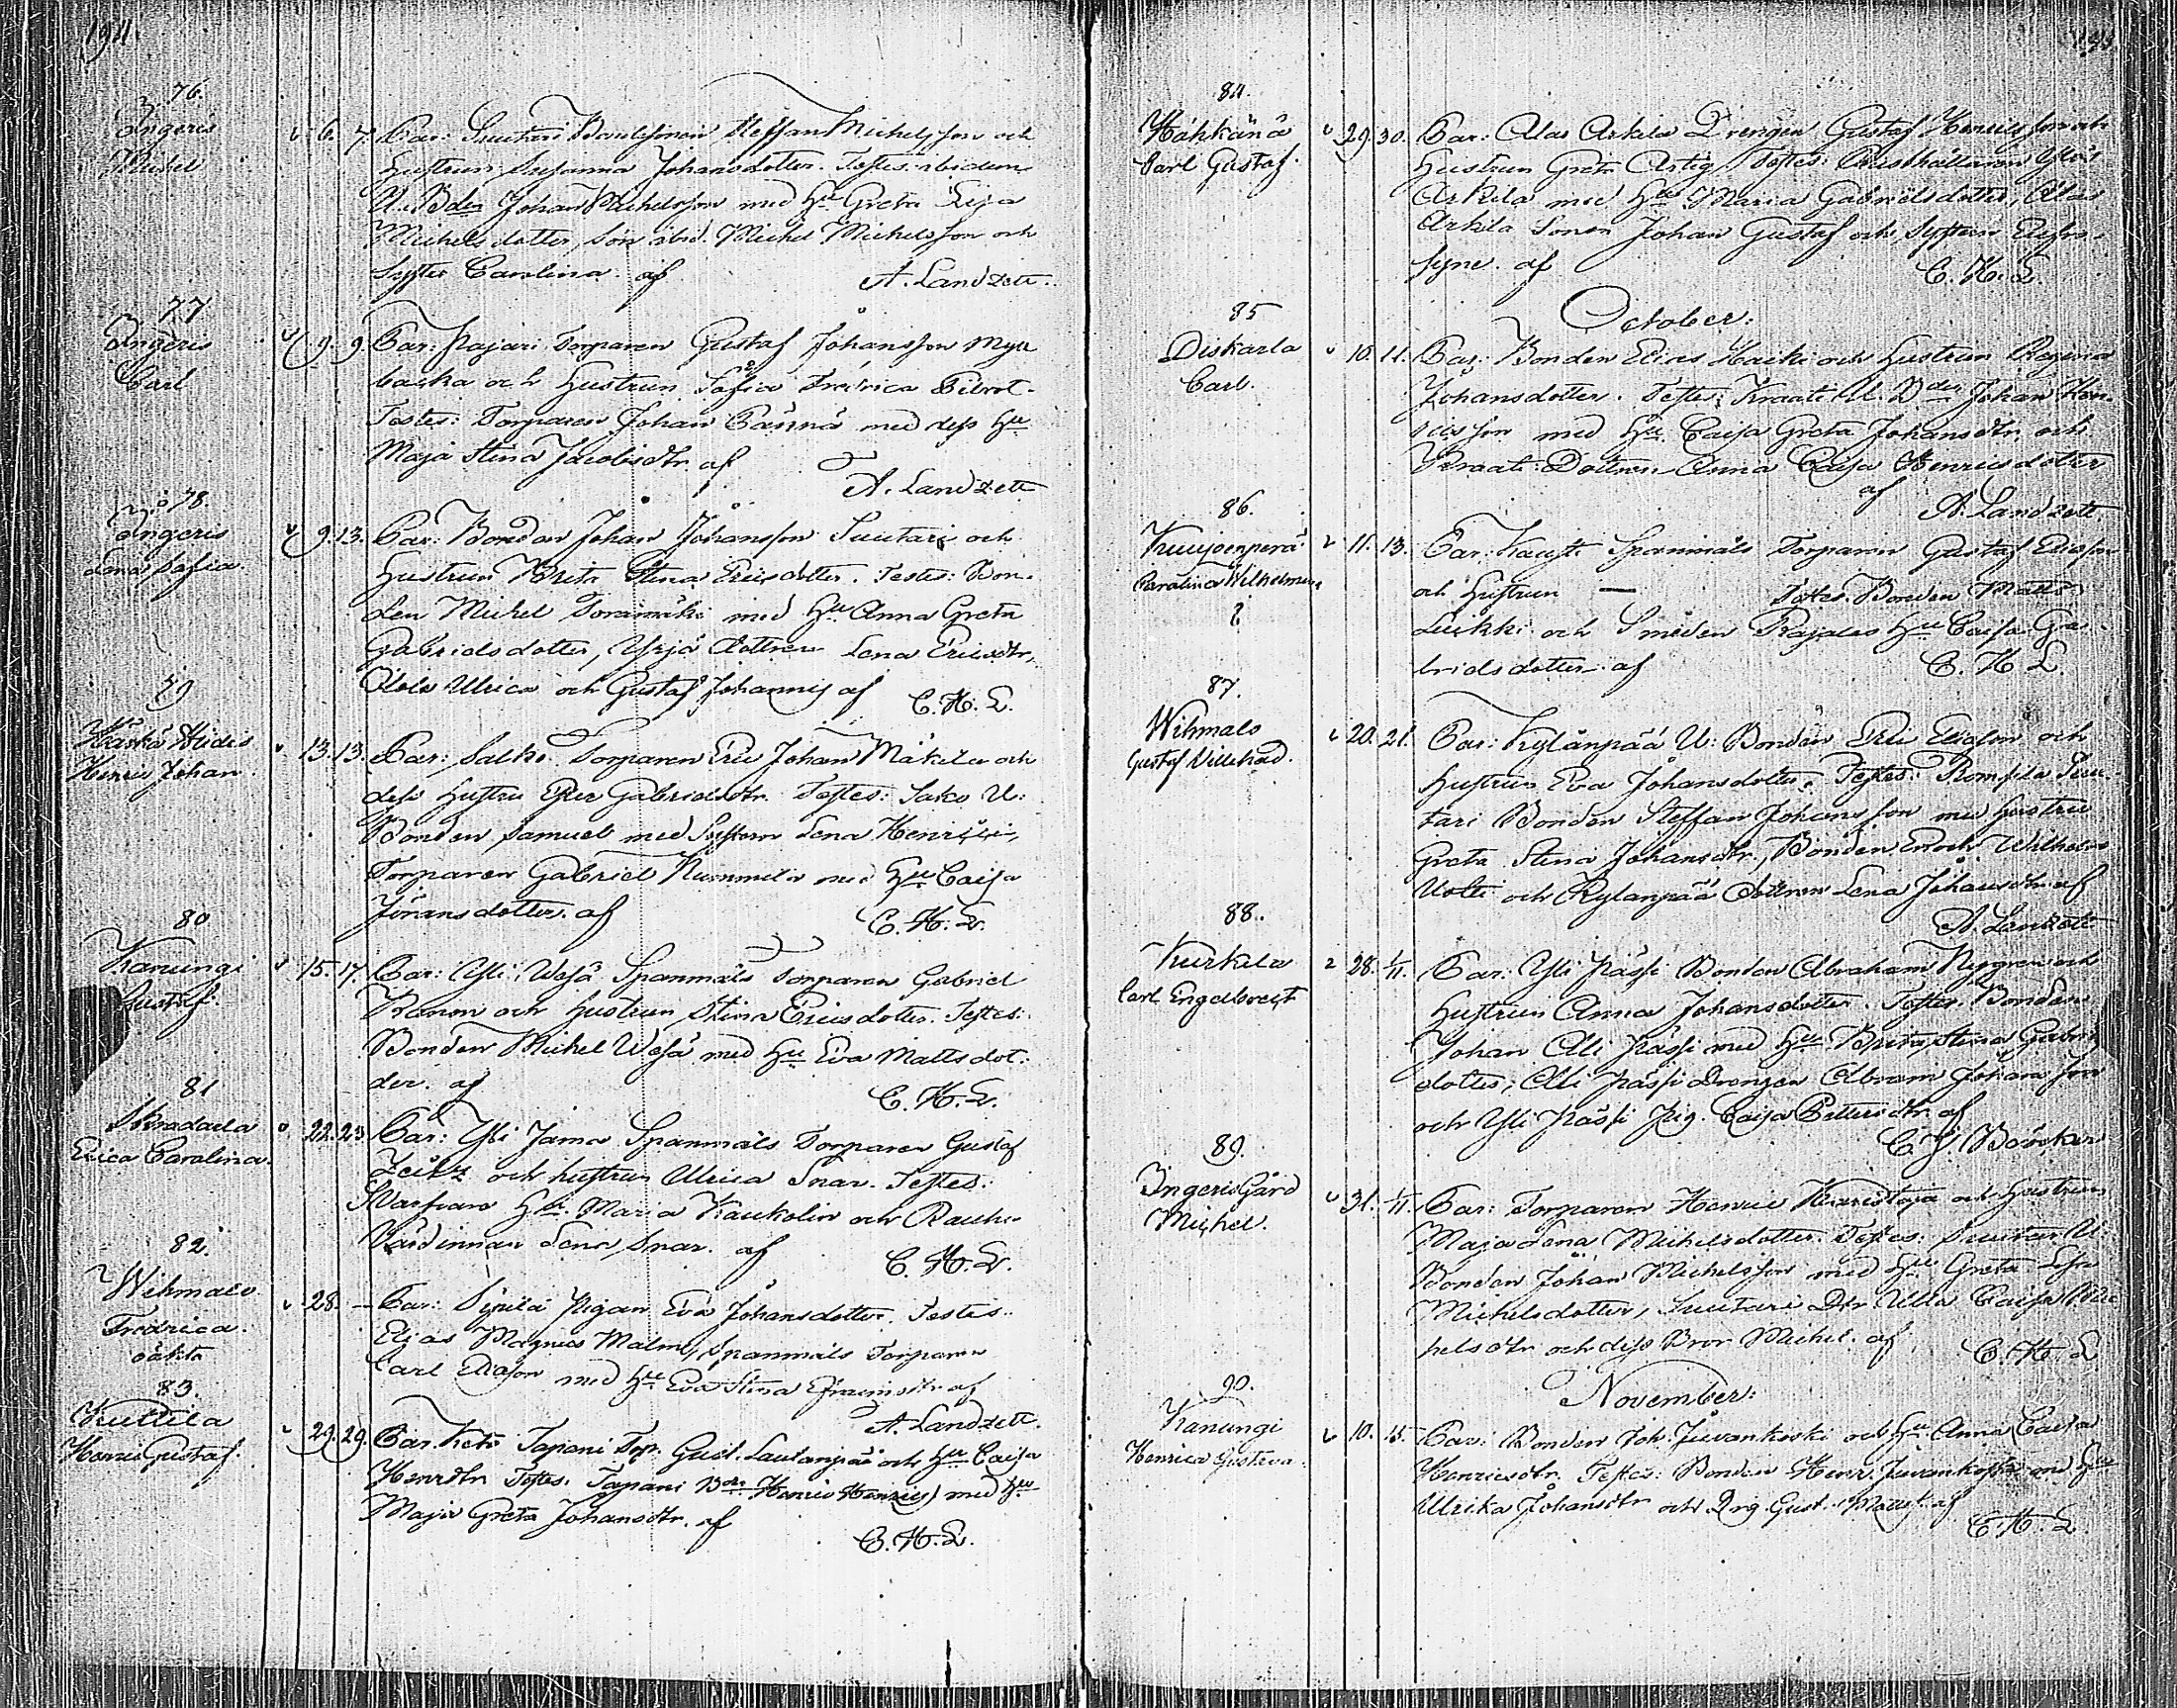 194
76.
Ingeris
Michel
6. 7. Par: Suutari Steffan Michelsson och
Hustrun Susanna Johansdotter. Testes: ibidem
U. Bden Johan Michelsson med Hu Greta Lisa
Michelsdotter, Son ibid. Michel Michelsson och
Syster Carolina. af A. Landzett.
77
Ingeris
Carl
9. 9. Par: Pajari Torparen Gustaf Johansson
backa och Hustrun Sofia Fredrica
Testes: Torparen Johan med dess Hu
Maja Stina Jacobsdtr. af
A. Landzett
78.
Ingeris
Lena Sofia
9. 13. Par: Bonden Johan Johansson Suutari och
Hustrun Brita Stina Ericsdotter. Testes: Bon-
den Michel Soramäki med Hu Anna Greta
Gabrielsdotter, Yrjä Dottren Lena Ericsdtr,
Ulrica och Gustaf Johannis af C. H. L.
79
Alidis
Henric Johan
13. 13. Par: Salko Torparen Eric Johan Mäkelä och
dess Hustru Gabrielsdtr. Testes: Sako U:
Bonden Samuel med Systern Lena
Torparen Gabriel Nummela med Hu Caisa
Göransdotter. af C. H. L.
80
Kanungi
Gustaf.
15. 17. Par: Yli Wesä Spanmåls Torparen Gabriel
och Hustrun Stina Ericsdotter. Testes:
Bonden Michel Wesä med Hu Eva Mattsdot-
ter. af C. H. L.
81
Skradarla
Erica Carolina.
22. 23 Par: Yli Jama Spanmåls Torparen Gustaf
och hustrun Ulrica Snar. Testes:
Hu. Maria Kaukolin och
Värdinnan Lena Snar. af C. H. L.
82.
Wihmalo
Fredrica.
oäkta
28. – Par: Sipilä Pigan Eva Johansdotter. Testes:
Elias Magnus Malm, Spanmåls Torparen
Carl med Hu Eva Stina Efraimsdtr. af
A. Landzett.
83.
Kuttila
Henric Gustaf.
29. 29. Par. Keto Tapani Torp. Gust. Lautanpää och Hu Caisa
Henrdtr Testes. Tapani Bdn Henric med Hu
Maja Greta Johansdtr. af C. H. L.
84.
Hähkänä
Carl Gustaf.
29. 30. Par: Alas Arkila Drengen Gustaf Henricsson och
Hustrun Greta Artig, Testes: Rusthållaren
Arkila med Hu Maria Gabrielsdotter, Alas
Arkila Sonen Johan Gustaf och Systern Eufro-
syne. af C. H. L.
October:
85
Diskarla
Carl.
10. 11. Par: Bonden Elias Haiki och Hustrun Regina
Johansdotter. Testes: Kraati U. Bden Johan Hen-
ricsson med Hu Caisa Greta Johansdtr. och
Kraati Dottren Anna Caisa Henricsdotter
af A. Landzett.
86.
Kuujoenperä
Carolina Wilhelmina
?
11. 13. Par: Spanmåls Torparen Gustaf Ericsson
och Hustrun — Testes. Bonden Matts
Luikki och Smeden Rajalas Hu Caisa Ga-
brielsdotter. af C. H. L.
87.
Wihmalo
Gustaf Villehad.
20. 21. Par: Kylänpää U: Bonden Eric och
Hustrun Eva Johansdotter. Testes: Rompila Suu-
tari Bonden Steffan Johansson med Hustru
Greta Stina Johansdtr., Bonden Enoch Wilhelm
Uotti och Kylänpää Dottren Lena Johansdtr. af
A. Landzett
88.
Kurkela
Carl Engelbrecht
28. 1/11. Par: Yli Pässi Bonden Abraham Nygren och
Hustrun Anna Johansdotter. Testes: Bonden
Johan Ali Pässi med Hu Brita Stina Gabri
dotter, Ali Pässi Drengen Abram Johansson
och Yli Pässi Pig. Caisa Pettersdtr. af
C. J. Bäcker
89.
Ingeris Gård
Michel.
31. 1/11. Par: Torparen Henric och Hustrun
Maja Lena Michelsdotter. Testes: Suutari U:
Bonden Johan Michelsson med Hu Greta Lisa
Michelsdotter, Suutari Dtr. Ulla Caisa Mic
helsdtr. och dess Bror Michel. af C. H. L
November:
90.
Kanungi
Henrica Gustava
10. 15. Par: Bonden Joh. Juvankoski och Hu Anna Caisa
Henricsdtr. Testes: Bonden Henr. Juvankoski med Hu
Ulrika Johansdtr och Drg. Gust. af
C. H. L.